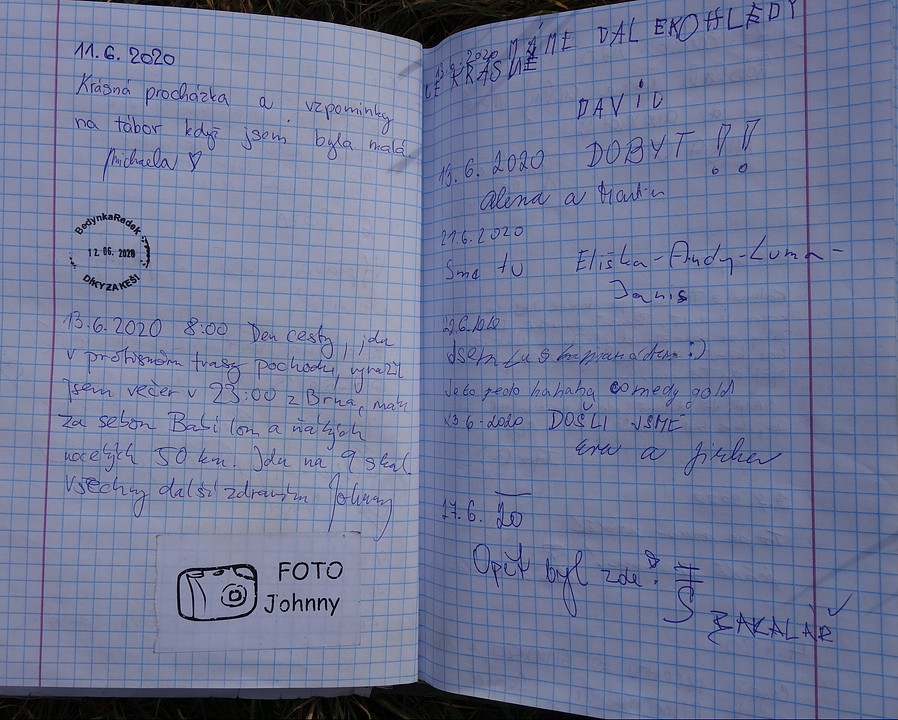 11.6.2020
Krásná procházka a vzpomínky
na tábor když jsem byla malá
Michaela ♡
BedynkaRadek
12.06.2020
DÍKYZAKEŠI
13.6.2020 8:00 Den cesty, jdu
v protisměru trasy pochodu, vyrazil
jsem večer v 23:00 z Brna, mám
za sebou Babí lom a
50 km. Jdu na 9 skal
Všechny další zdravím Johnny
FOTO
Johnny
MÁME DALEKOHLEDY
JE KRÁSNĚ
DAVID
DOBYT !!
6.2020
Alena a Martin
21.6.2020
Sme tu Eliška-Andy-Luma-
Janis
jsem tu s :)
hahaha comedy gold
6.2020 DOŠLI JSME
Eva a Jirka
17.6. 20
Opět byl zde:
BAKALÁŘ